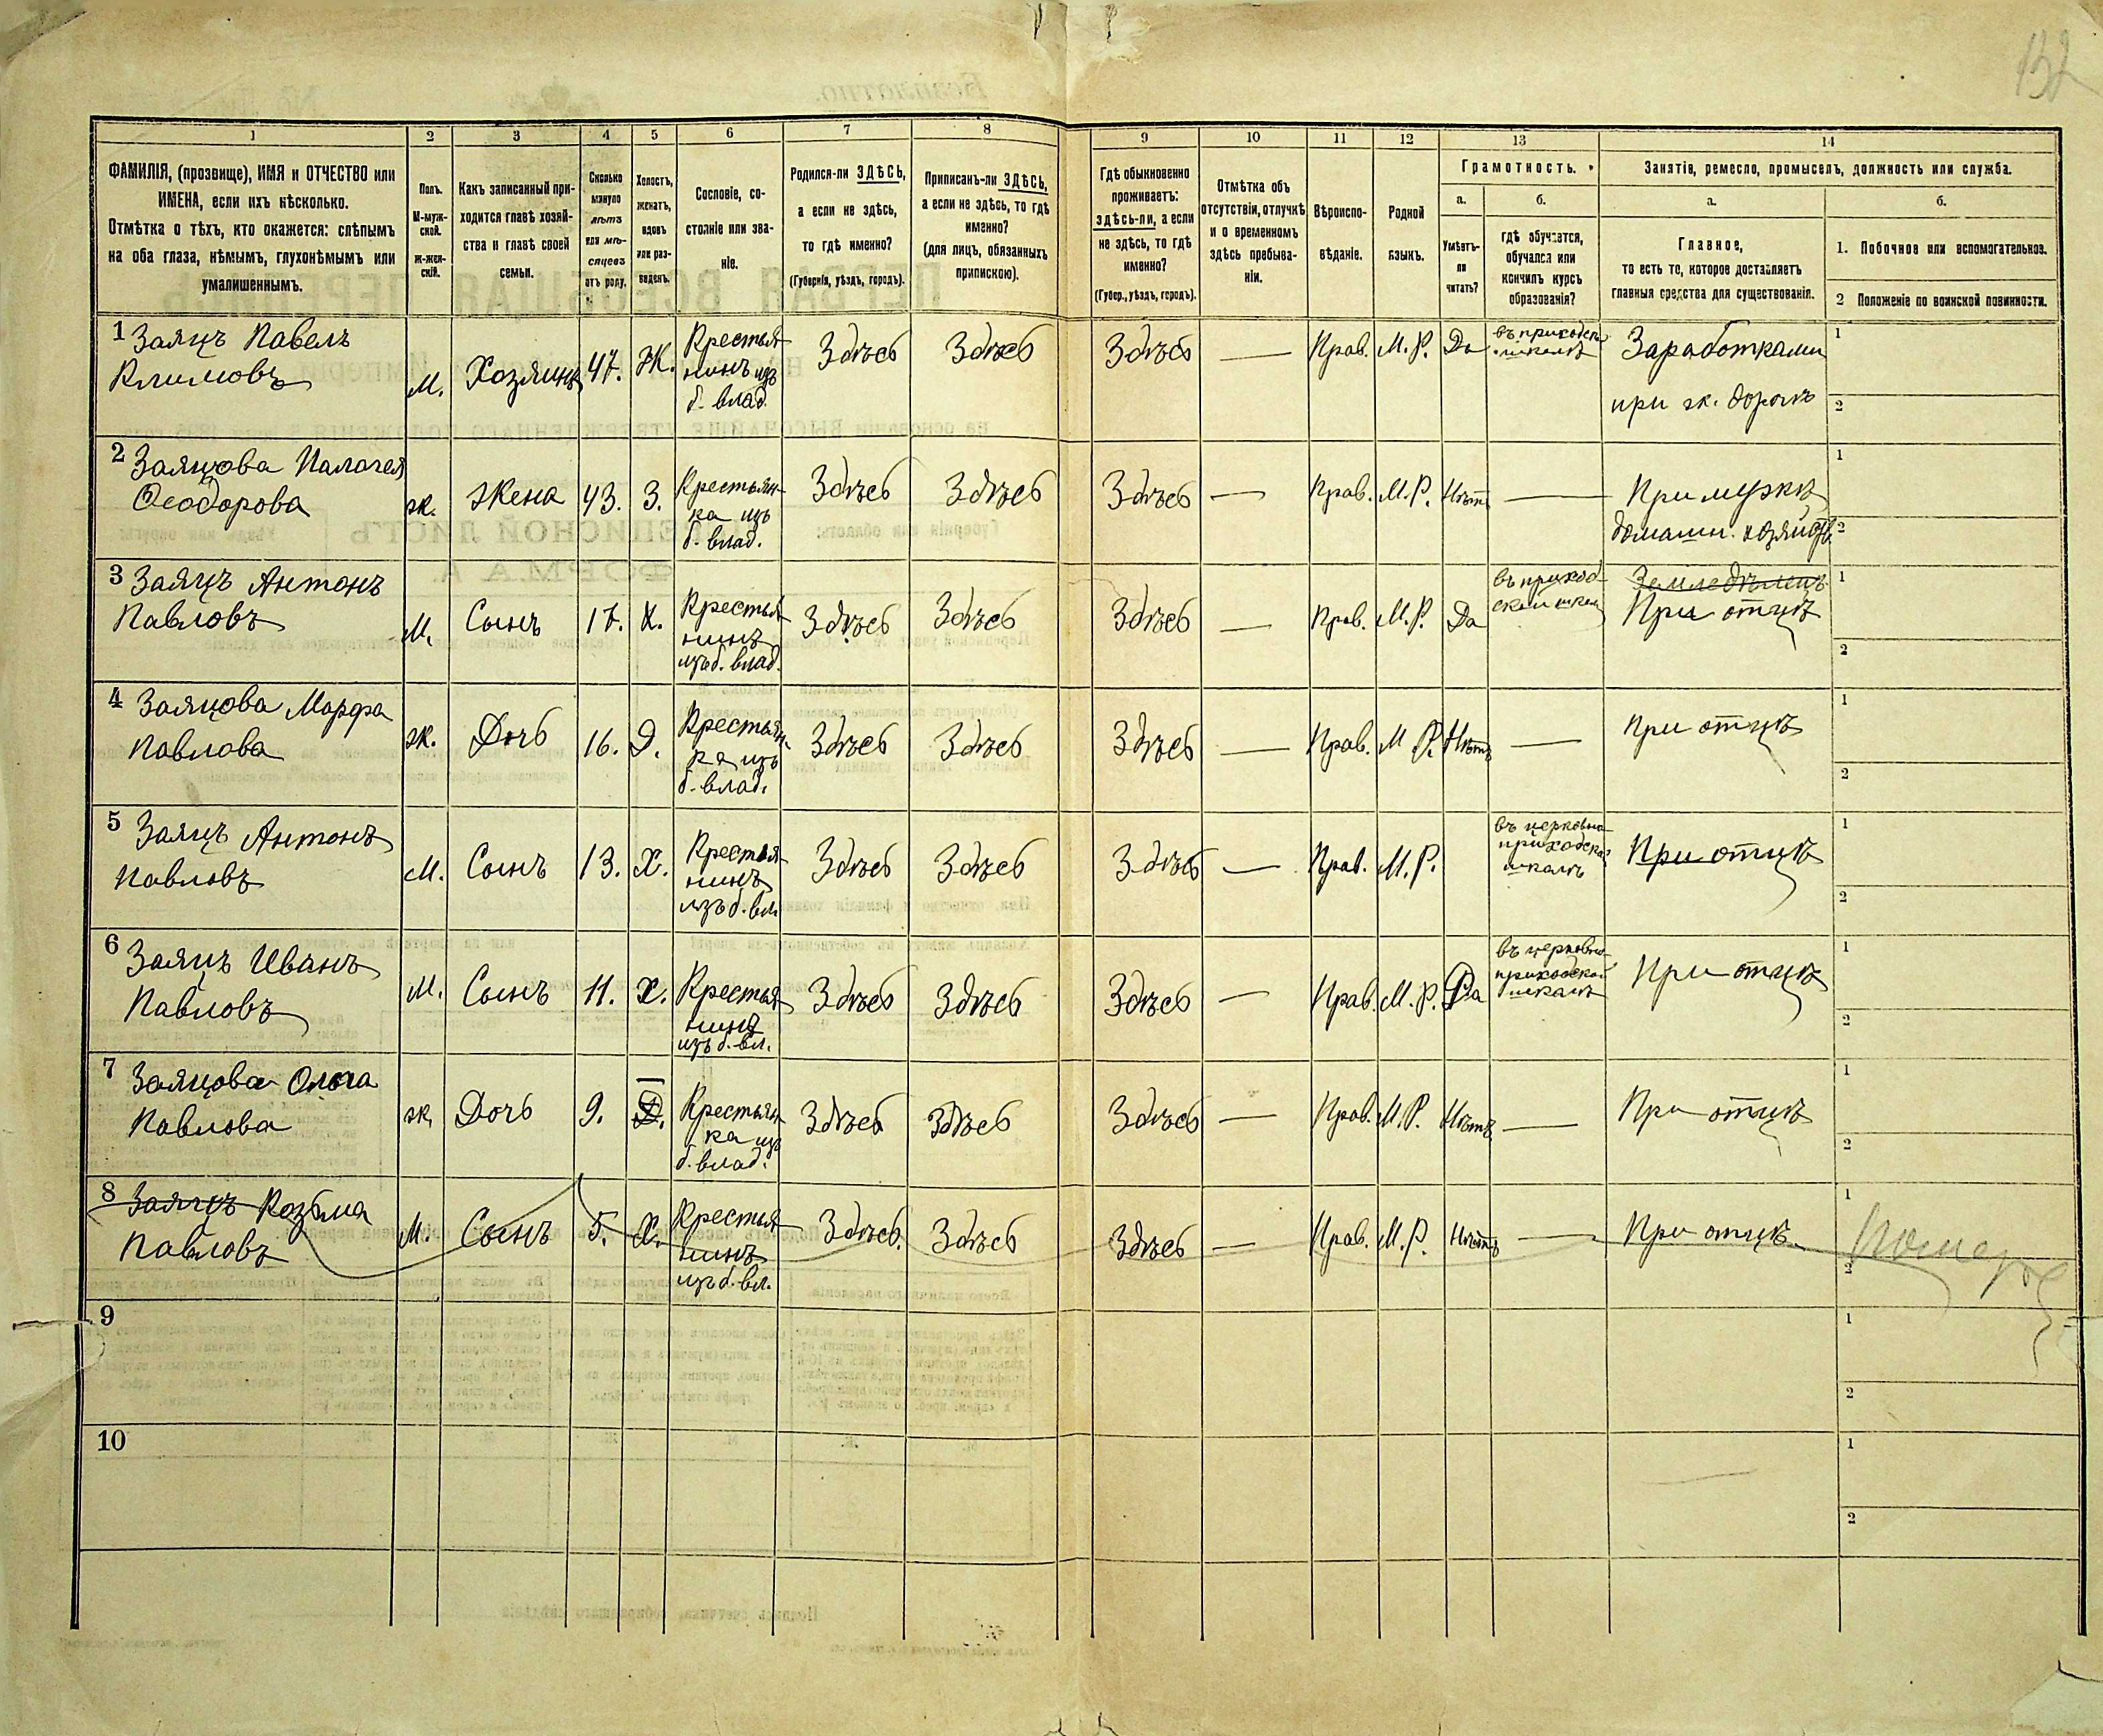 132
1
2
3
4
5
6
7
8
9
10
11
12
13
14
ФАМИЛІЯ, (прозвище), ИМЯ и ОТЧЕСТВО или
ИМЕНА, если ихъ нѣсколько.
Отмѣтка о тѣхъ, кто окажется: слѣпымъ
на оба глаза, нѣмымъ, глухонѣмымъ или
умалишеннымъ.
Полъ.
М-муж-
ской.
Ж-жен-
скій.
Какъ записанный при-
ходится главѣ хозяй-
ства и главѣ своей
семьи.
Сколько
минуло
лѣтъ
или мѣ-
сяцевъ
отъ роду.
Холостъ,
женатъ,
вдовъ
или раз-
веденъ.
Сословіе, со-
стояніе или зва-
ніе.
Родился-ли ЗДѢСЬ,
а если не здѣсь,
то гдѣ именно?
(Губернія, уѣздъ, городъ).
Приписанъ-ли ЗДѢСЬ,
а если не здѣсь, то гдѣ
именно?
(для лицъ, обязанныхъ
припискою).
Гдѣ обыкновенно
проживаетъ:
здѣсь-ли, а если
не здѣсь, то гдѣ
именно?
(Губер., уѣздъ, городъ).
Отмѣтка объ
отсутствіи, отлучкѣ
и о временномъ
здѣсь пребыва-
ніи.
Вѣроиспо-
вѣданіе.
Родной
языкъ.
Грамотность.
а.
Умѣетъ-
ли
читать?
б.
гдѣ обучается,
обучался или
кончилъ курсъ
образованія?
Занятія, ремесло, промыселъ, должность или служба.
а.
Главное,
то есть то, которое доставляетъ
главныя средства для существованія.
б.
1. Побочное или вспомогательное.
2 Положеніе по воинской повинности.
1 Заяцъ Павелъ
Климовъ
М.
Хозяинъ
47.
Ж.
Крестья-
нинъ изъ
б. влад.
Здѣсь
Здѣсь
Здѣсь
—
Прав.
М.Р.
Да
въ приходск.
школѣ
Заработками
при ж. дорогѣ
1
2
2 Заяцова Палагея
Ѳеодорова
ж.
Жена
43.
З.
Крестьян-
ка изъ
б. влад.
Здѣсь
Здѣсь
Здѣсь
—
Прав.
М.Р.
Нѣтъ
—
При мужѣ
домашн. хозяйств.
1
2
3 Заяцъ Антонъ
Павловъ
М.
Сынъ
17.
Х.
Крестья-
нинъ
изъ б. влад.
Здѣсь
Здѣсь
Здѣсь
—
Прав.
М.Р.
Да
въ приход-
ской школ
Земледѣлецъ
При отцѣ
1
2
4 Заяцова Марфа
Павлова
ж.
Дочь
16.
Д.
Крестьян-
ка изъ
б. влад.
Здѣсь
Здѣсь
Здѣсь
—
Прав.
М Р.
Нѣтъ
—
При отцѣ
1
2
5 Заяцъ Антонъ
Павловъ
М.
Сынъ
13.
Х.
Крестья-
нинъ
изъ б. вл.
Здѣсь
Здѣсь
Здѣсь
—
Прав.
М.Р.
въ церковно-
приходской
школѣ
При отцѣ
1
2
6 Заяцъ Иванъ
Павловъ
М.
Сынъ
11.
Х.
Крестья-
нинъ
изъ б. вл.
Здѣсь
Здѣсь
Здѣсь
—
Прав.
М.Р.
Да
въ церковно-
приходской
школѣ
При отцѣ
1
2
7 Заяцова Ольга
Павлова
ж
Дочь
9.
Д.
Крестьян-
ка изъ
б. влад.
Здѣсь
Здѣсь
Здѣсь
—
Прав.
М.Р.
Нѣтъ
—
При отцѣ
1
2
8 Заяцъ Козьма
Павловъ
М.
Сынъ
5.
Х.
Крестья-
нинъ
изъ б. вл.
Здѣсь.
Здѣсь
Здѣсь
—
Прав.
М.Р.
Нѣтъ
—
При отцѣ
1
2
9
1
2
10
1
2